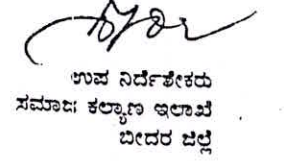 ಉಪ ನಿರ್ದೇಶಕರು
ಸಮಾಜ ಕಲ್ಯಾಣ ಇಲಾಖೆ
ಬೀದರ ಜಿಲ್ಲೆ